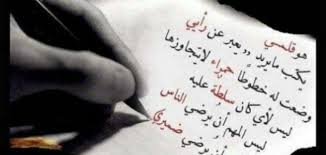 هو قلمي
يكتب ما يريد و يعبر عن رأيي
وضعت له خطوطاً حمراء لا يتجاوزها
ليس لأي كان سلطة عليه
ليس المهم أن يرضي الناس
أن يرضي ضميري